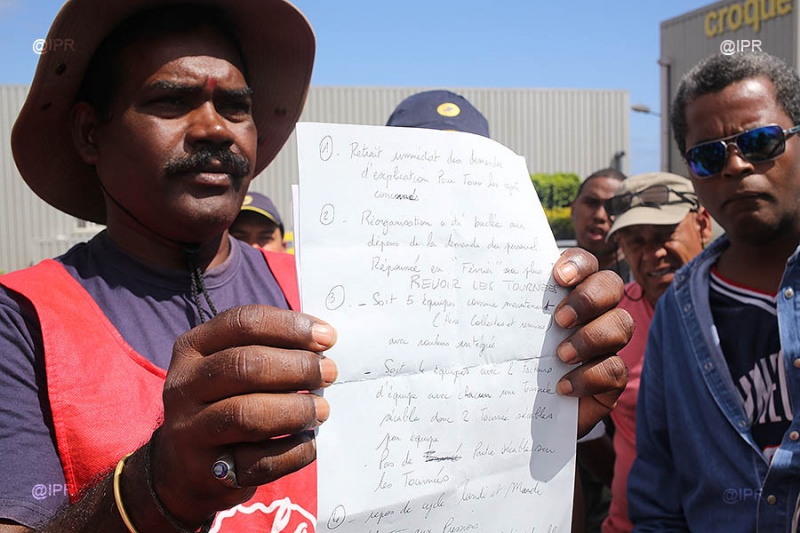 croque
@IPR
@IPR
① - Retrait immédiat des demandes
d'explication Pour Tous les agts
concernés
② - Réorganisation a été baclée aux
dépens de la demande du personnel
en "Février" au plus
REVOIR LES TOURNEES
③ - Soit 5 équipes comme maintenant
Collectes et remises
avec rouleurs intégrés
- Soit 4 équipes avec 2 facteurs
d'équipe avec chacun une Tournée
sécable donc 2 Tournée sécables
par equipe
- Pas de Partie sécable sur
les Tournées
④ - repos de cycle Lundi et
aux Pressions
@IPR
@IPR